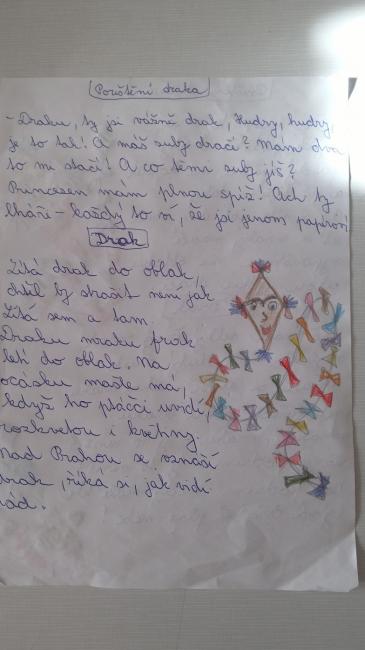 Pouštění draka
- Draku, ty jsi vážně drak, Hudry, hudry,
je to tak! A máš zuby dračí? Mám dva
to mi stačí! A co těmi zuby jíš?
Princezen mám plnou spíž! Ach ty
lháři - každý to ví, že jsi jenom papírový
Drak
Lítá drak do oblak,
chtěl by strašit není jak
Lítá sem a tam.
Draku mraku frnk
letí do oblak. Na
ocásku mašle má,
když ho ptáčci uvidí,
rozkvetou i květiny.
nad Prahou se vznáší
drak, říká si, jak vidí
rád.